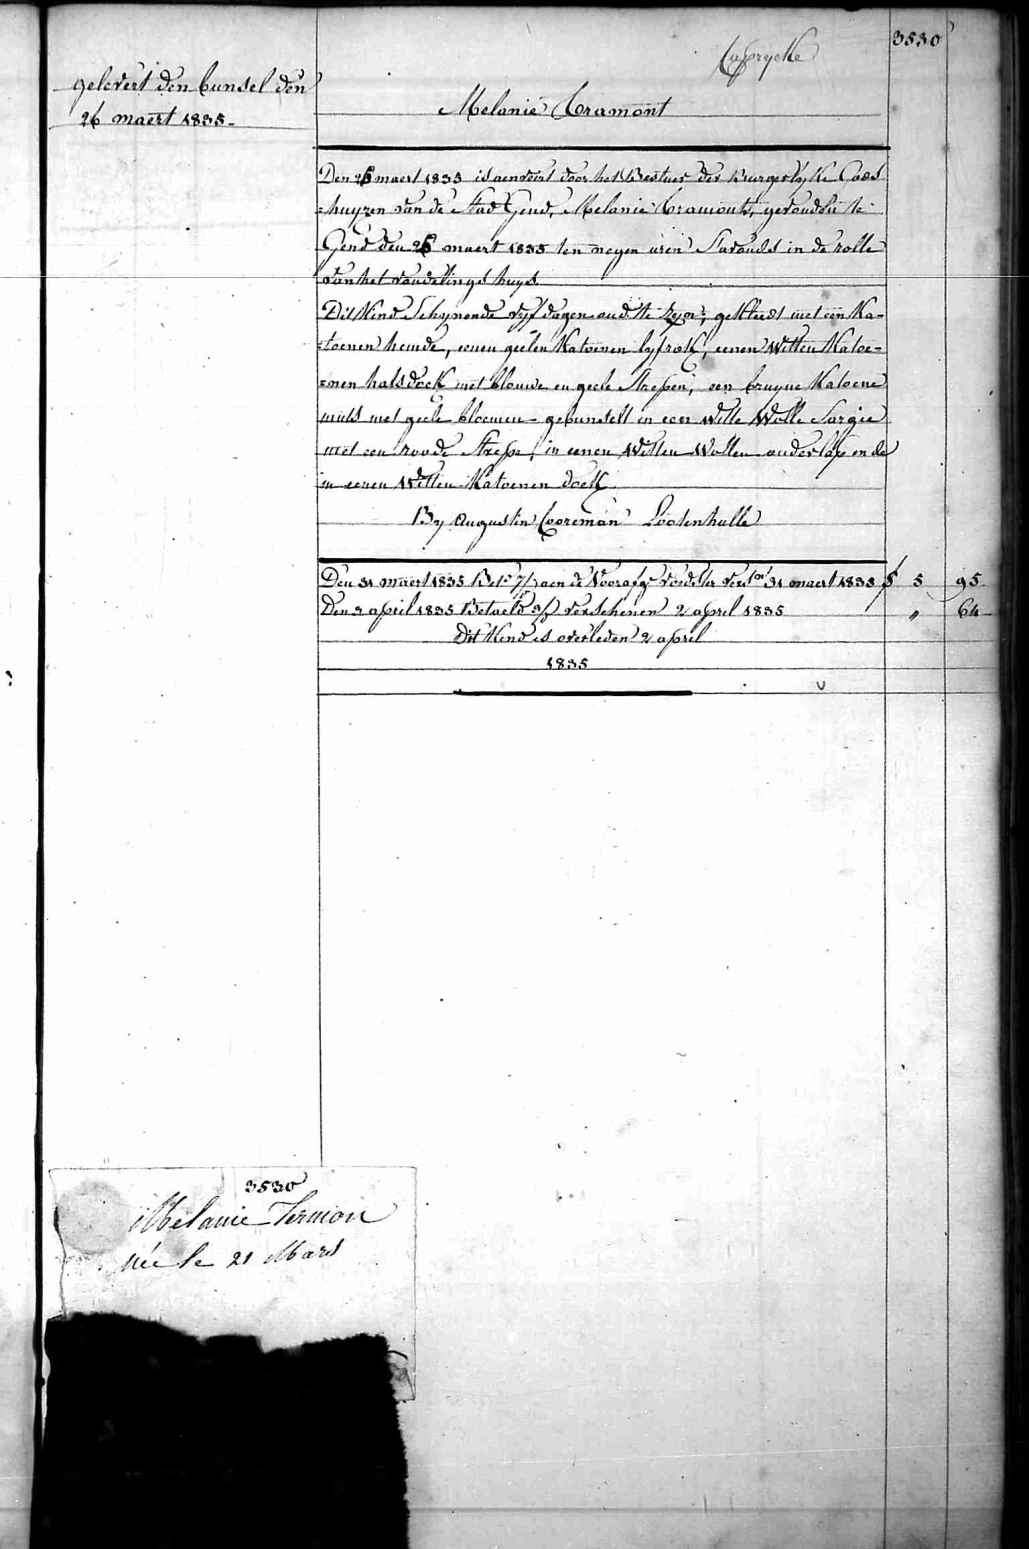 3530
Caprycke
gelevert den bunsel den
26 maert 1835.
Melanie Cramont
Den 26 maert 1835 is aenveirt door het Bestuer der Burgerlyke Gods
=huyzen van de Stad Gend, Melanie Cramont, gevonden te
Gend den 26 maert 1835 ten negen uren s'avonds in de rolle
van het vondelings huys.
Dit Kind Schynende vyf dagen oud te zyn, gekleed met een Ka=
=toenen hemde, eenen geelen Katoenen lyfrok, eenen Witten Katoe=
=nen halsdoek met blauwe en geele Strepen, een bruyne Katoene
muts met geele bloemen gebunselt in een Witte Wolle Sargie
met een roode Strepe, in eenen Witten Wollen onderlap en de
in eenen Witten Katoenen doek
By Augustin Cooreman Lootenhulle
Den 31 maert 1835 Bet. 7/ aen de Voorafg. voedster 31 maert 1835 f 5 95
Den 3 april 1835 Betaeld verschenen 2 april 1835 " 64
Dit Kind is overleden 2 april
1835
3530
Melanie Termon
née le 21 Mars